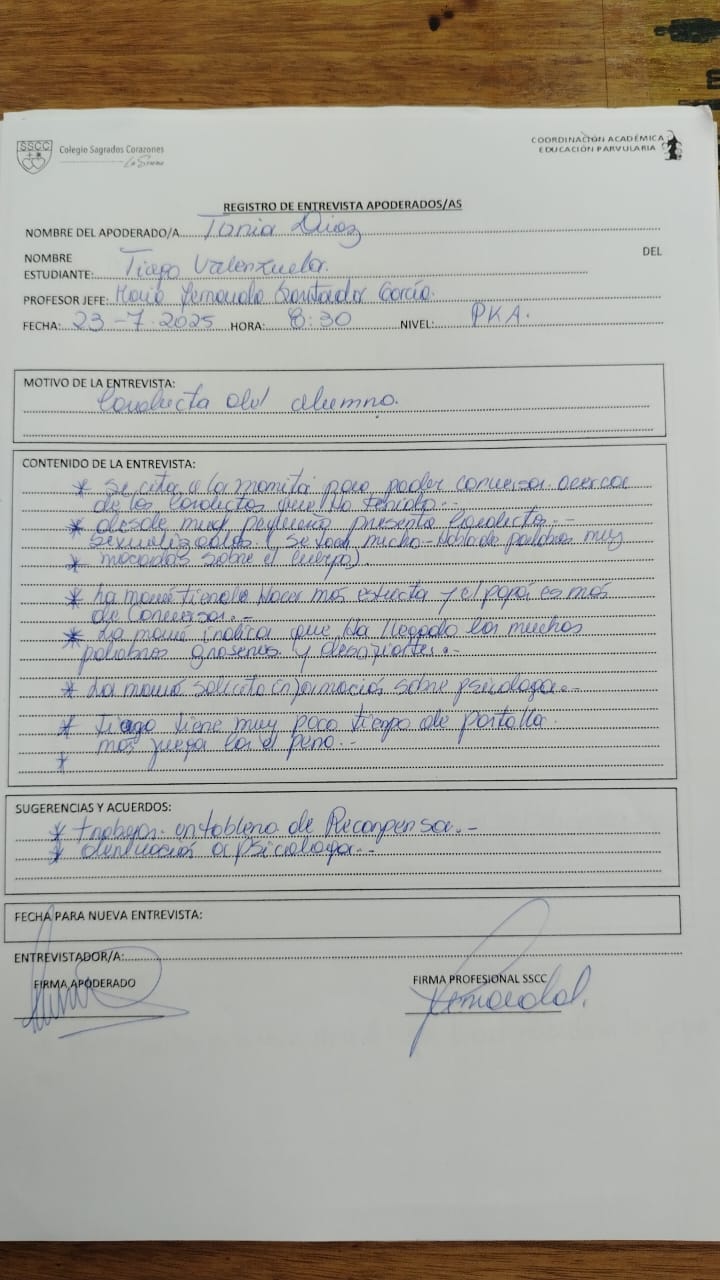 SSCC
Colegio Sagrados Corazones
La Serena
COORDINACIÓN ACADÉMICA
EDUCACIÓN PARVULARIA
REGISTRO DE ENTREVISTA APODERADOS/AS
NOMBRE DEL APODERADO/A Tania Diaz
NOMBRE DEL
ESTUDIANTE: Tiago Valenzuela.
PROFESOR JEFE: María Fernanda García.
FECHA: 23-7-2025 HORA: 8:30 NIVEL: PKA.
MOTIVO DE LA ENTREVISTA:
Conducta del alumno.
CONTENIDO DE LA ENTREVISTA:
* Se cita a la mamita para poder conversar acerca
de las conductas que ha tenido.-
* desde muy pequeño presenta conductas.-
sexualizadas. (Se toca mucho - habla de palabras muy
* sobre el cuerpo).
* La mamá tiende hacer más estricta y el papá es más
de conversar.-
* La mamá indica que ha llegado con muchas
palabras groseras y desafiantes.-
* La mamá solicita información sobre psicóloga.-
* Tiago tiene muy poco tiempo de pantalla.
más juega con el perro.-
*
SUGERENCIAS Y ACUERDOS:
* trabajar en tablero de Recompensa.-
* derivación a psicóloga.-
FECHA PARA NUEVA ENTREVISTA:
ENTREVISTADOR/A:
FIRMA APODERADO
FIRMA PROFESIONAL SSCC